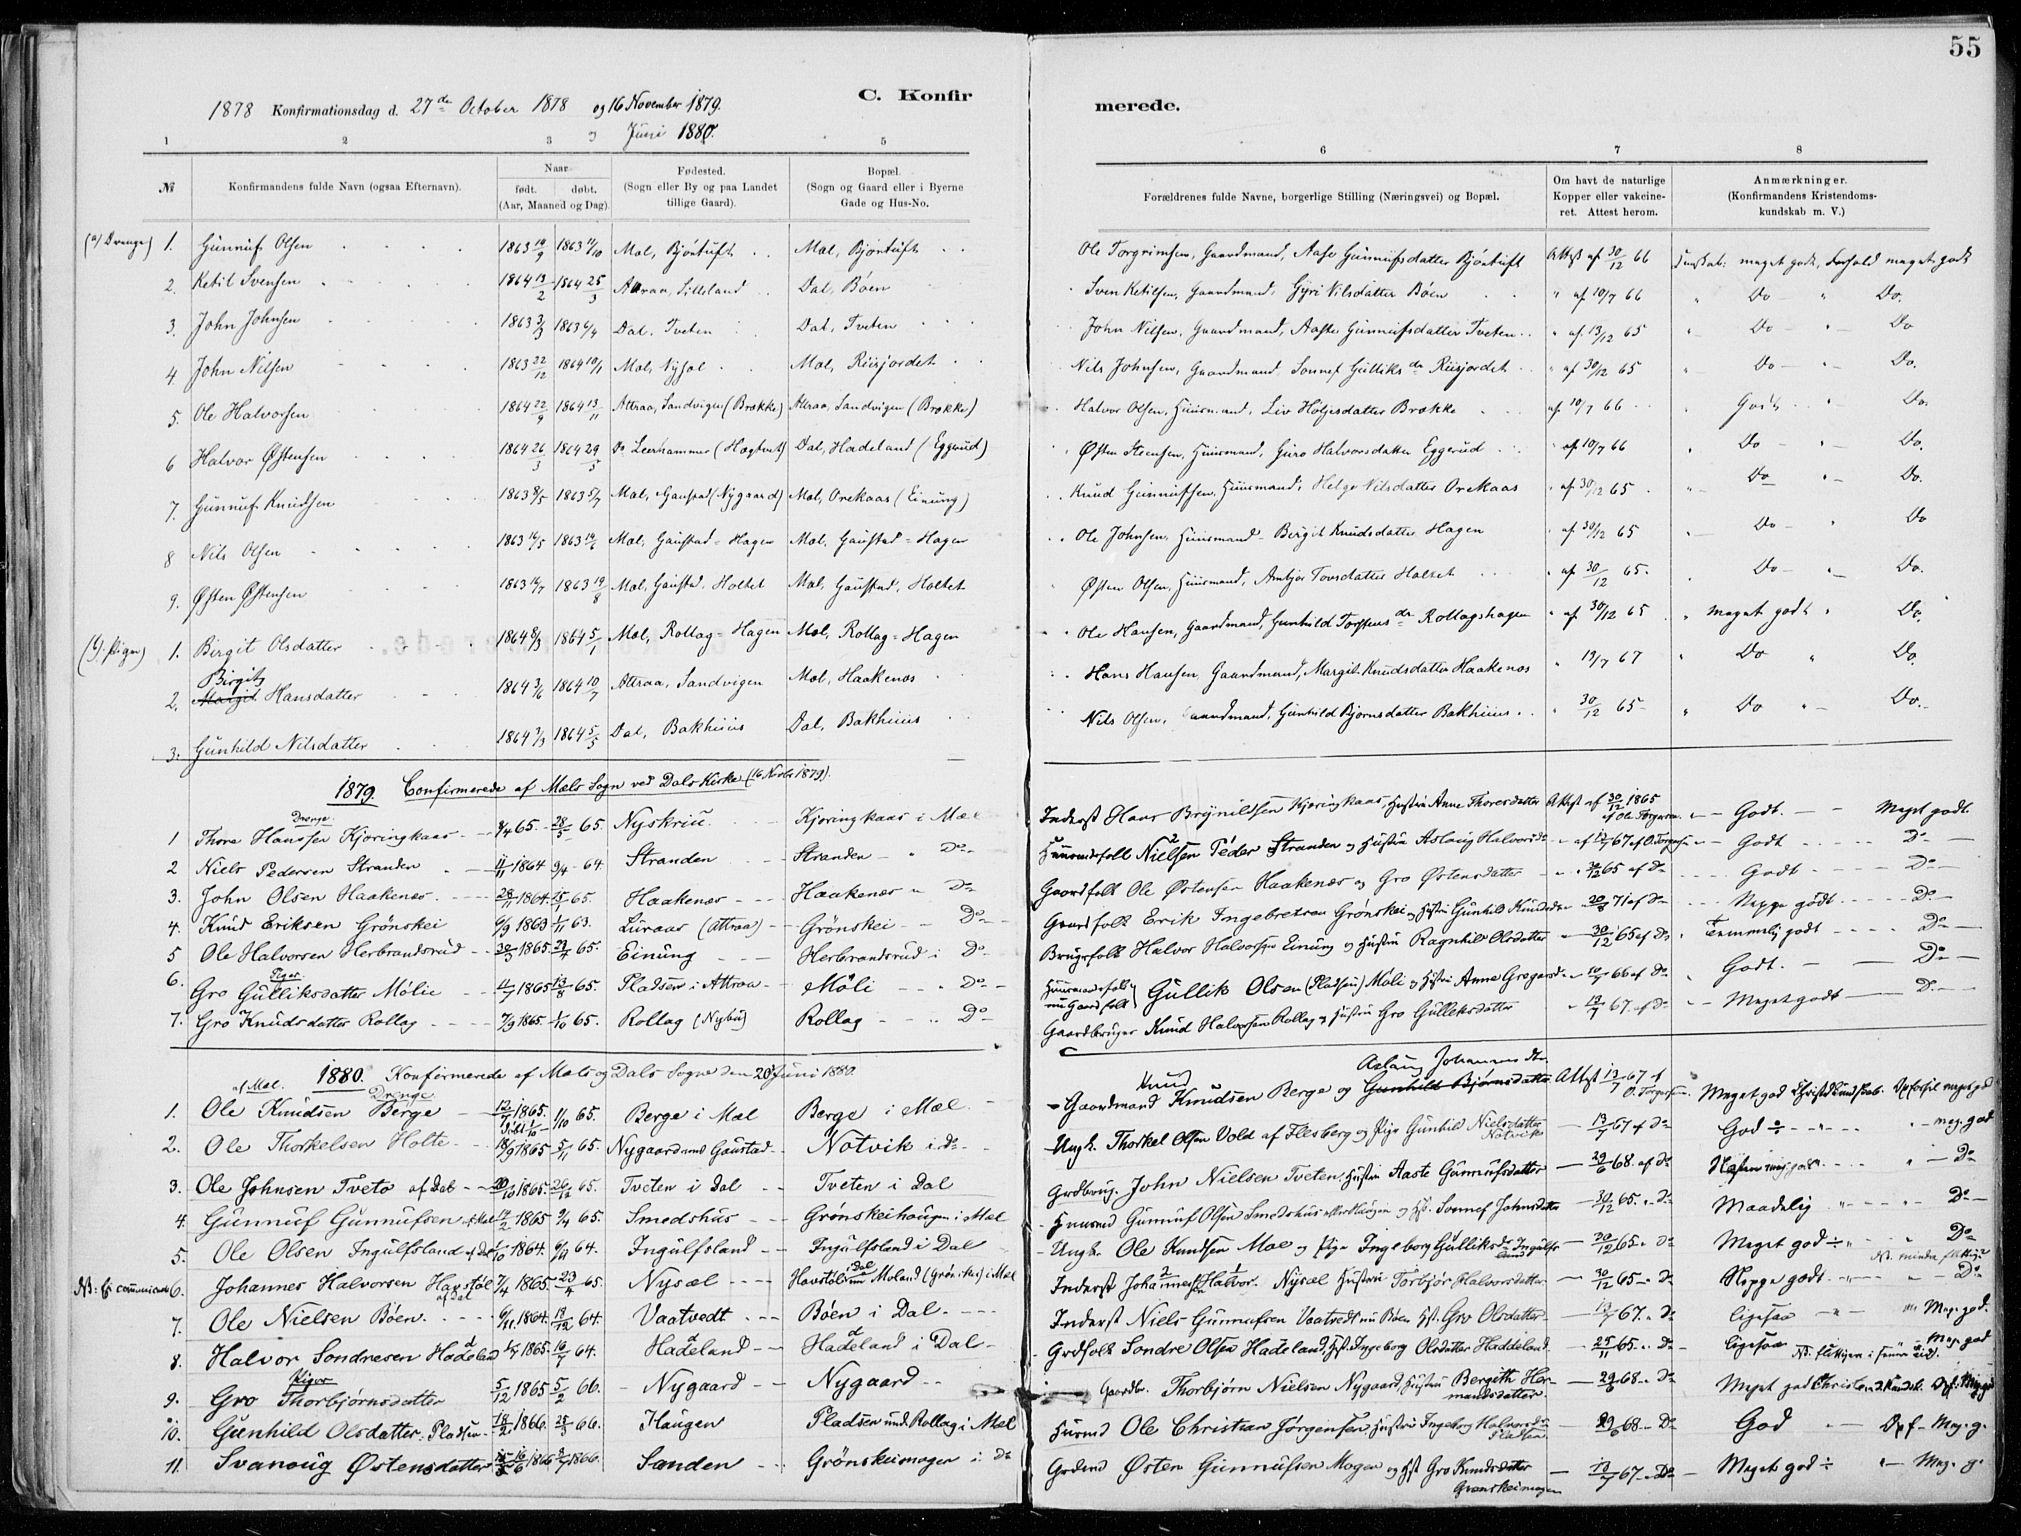 55
C. Konfir merede.
1878 Konfirmationsdag d. 27de October 1878 og 16 November 1879.
og Juni 1880.
1 2 3 5 6 7 8
№ Konfirmandens fulde Navn (ogsaa Efternavn). Naar født. døbt. (Aar, Maaned og Dag). Fødested. (Sogn eller By og paa Landet tillige Gaard). Bopæl. (Sogn og Gaard eller i Byerne Gade og Hus-No. Forældrenes fulde Navne, borgerlige Stilling (Næringsvei) og Bopæl. Om havt de naturlige Kopper eller vakcineret. Attest herom. Anmærkninger. (Konfirmandens Kristendomskundskab m. V.)
(a) Drenge) 1. Gunnuf Olsen 1863 19/9 1863 11/10 Mæl, Bjöntuft Mæl, Bjöntuft Ole Torgrimsen, Gaardmand, Aase Gunnufsdatter Bjöntuft Attest af 30/12 66 Kundskab: meget godt, Forhold meget godt
2. Ketil Svensen 1864 13/2 1864 25/3 Attraa, Lilleland Dal, Bøen Sven Ketilsen, Gaardmand, Gyri Nilsdatter Bøen " af 10/7 66 " Do " Do.
3. John Johnsen 1863 3/3 1863 6/4 Dal, Tveten Dal, Tveten John Nilsen, Gaardmand, Aaste Gunnufsdatter Tveten " af 13/12 65 " Do " Do
4 John Nilsen 1863 22/12 1864 10/1 Mæl, Nysæl Mæl, Riisjordet Nils Johnsen, Gaardmand Sonnef Gulliksdr Riisjordet " af 30/12 65 " Do " Do.
5. Ole Halvorsen 1864 22/9 1864 13/11 Attraa, Sandvigen (Brække) Attraa, Sandvigen (Brække) Halvor Olsen, Huusmand, Liv Holjesdatter Brække af 10/7 66 " Godt " Do.
6 Halvor Østensen 1864 26/3 1864 29/3 Do Leerhammer (Hægtvet) Dal, Hadeland (Eggerud) Østen Steensen, Huusmand, Guro Halvorsdatter Eggerud " af 10/7 66 " Do " Do.
7. Gunnuf Knudsen 1863 8/5 1863 5/7 Mæl, Gaustad (Nygaard) Mæl, Orekaas (Einung) Knud Gunnufsen, Huusmand, Helge Nilsdatter Orekaas " af 30/12 65 " Do " Do.
8 Nils Olsen 1863 14/5 1863 14/6 Mæl, Gaustad = Hagen Mæl, Gaustad = Hagen Ole Johnsen, Huusmand - Birgit Knudsdatter Hagen " af 30/12 65 " Do " Do
9. Østen Østensen 1863 14/7 1863 19/8 Mæl, Gaustad, Holtet Mæl, Gaustad, Holtet Østen Olsen, Huusmand, Ambjør Torsdatter Holtet " af 30/12 65. " Do " Do.
1. Birgit Olsdatter 1864 8/3 1864 5/1 Mæl, Rollag = Hagen Mæl, Rollag = Hagen Ole Hansen, Gaardmand, Gunhild Torstensdr Rollagshagen " af 30/12 65 " Meget godt " Do.
Birgit
2. Margit Hansdatter 1864 3/6 1864 10/7 Attraa, Sandvigen Mæl, Haakenæs Hans Hansen, Gaardmand, Margit Knudsdatter Haakenæs " 13/7 67 " Do " Do.
3. Gunhild Nilsdatter 1864 7/3 1864 5/5 Dal, Bakhuus Dal, Bakhuus Nils Olsen, Gaardmand, Gunhild Bjørnsdatter Bakhuus " 30/12 65 " Do " Do.
1879. Confirmerede af Mæls Sogn ved Dals Kirke (16 Novbr 1879).
Drenge
1 Thore Hanssen Kjøringkaas 8/4 65 28/5 65. Nyskriu Kjøringkaas i Mæl Inderst Hans Brynildsen Kjøringkaas Hustru Anne Thoresdatter Attest af 30/12 1865 af Ole Torgersen Godt. Meget godt.
2 Niels Pedersen Stranden 11/11 1864 9/4 64. Stranden Stranden " Do Huusmdsfolk Nielsen Peder Stranden og Hustru Aslaug Halvorsdr af 13/7 67 af O. Torgersen Godt Do
3. John Olsen Haakenæs 28/11 1864. 15/1 65. Haakenæs Haakenæs " Do Gaardfolk Ole Østensen Haakenæs og Gro Østensdatter 30/12 65 af Do Godt Do
4. Knud Eriksen Grönskei 6/9 1863 1/11 63. Luraas (Attraa) Grönskei Do Gaardfolk Erik Ingebretsen Grönskei og Hustru Gunhild Knudsdr 20/8 71 af Do Neppe godt Do
5 Ole Halvorsen Herbrandsrud 28/3 1865. 23/4 65. Einung Herbrandsrud i Do Brugsfolk Halvor Halvorsen Einung og Hustru Ragnhild Olsdatter 30/12 65 af Do Temmelig godt Do
Piger
6. Gro Gulliksdatter Mølie 11/7 1865 13/8 65. Pladsen i Attraa Møli " Do Huusmandsfolk nu Gaardfolk Gullik Olsen (Pladsen) Møli og Hustru Anne Gregarsd. 10/7 66 af Do Godt. Do
7. Gro Knudsdatter Rollag 7/9 1865. 1/10 65. Rollag (Nybu) Rollag " Do Gaardbruger Knud Halvorsen Rollag og Hustru Gro Gulliksdatter 13/7 67. af Do Meget godt Do
1880. Konfirmerede af Mæls og Dals Sogne den 20 Juni 1880.
af Mæl. Drenge
Knud Aslaug Johannesdtr.
1. Ole Knudsen Berge 12/7 1865. 1/10 65. Berge i Mæl Berge i Mæl Gaardmand Knudsen Berge og Gunhild Bjørnsdatter Attest 13/7 67 af O. Torgersen. Meget god Christd.kundskab. Opførsel meget god
2. Ole Thorkelsen Holte 18/9 1865 5/11 65. Nygaard und Gaustad Notvik i do Ungk. Thorkel Olsen Vold af Flesberg og Pige Gunhild Nielsdatter Notvik 13/7 67 af Do God " meg. god
3. Ole Johnsen Tveto af Dal 1865. 26/12 65. Tveten i Dal Tveten i Dal Grdbrug. John Nielsen Tveten Hustru Aaste Gunnufsdatter 29/6 68. af Do Do
4. Gunnuf Gunnufsen af Mæl 14/2 1865 9/4 65. Smedshus Grønskeihaugen i Mæl Husmd Gunnuf Olsen Smedshus og Hst. Sonnef Johnsdatter 30/12 65. Do Maadelig Do
5. Ole Olsen Ingulfsland af Dal 1864. 64. Ingulfsland Ingulfsland i Dal Ungk. Ole Knudsen Moe og Pige Ingeborg Gulliksdr Ingulfsland 30/12 65. Do Meget god Do
NB. mindre flittig
6. Johannes Halvorsen Havstøl af Dal 7/4 1865. 23/4 65. Nysæl Havstöl i Dal Moland (Grönskei) i Mæl Inderst Johannesen Halvor. Nysæl Hustru Torbjør Halvorsdatter 30/12 65. Do Neppe godt Do
7. Ole Nielsen Böen 6/11 1864. 13/12 64. Vaatvedt Böen i Dal Inderst Niels Gunnufsen Vaatvedt nu Böen Hst. Gro Olsdatter 13/7 67. Do Ligesaa Meg. god.
8. Halvor Sondresen Hadeland 1/7 1865. 16/7 64. Hadeland Hadeland i Dal Grdfolk Sondre Olsen Hadeland, Hst. Ingeborg Olsdatter Haddeland 25/11 65. Do Ligesaa Meg. god
Piger
9. Gro Thorbjørnsdatter 5/12 1865 5/2 66. Nygaard Nygaard Gaardbr. Thorbjørn Nielsen Nygaard Hustru Bergith Hermandsdatter 29/6 68. Do Meget god Christend.Kundsk. Opf. Meg. god
10. Gunhild Olsdatter Pladsen 18/2 1866. 28/3 66. Haugen Pladsen und. Rollag i Mæl Husmd Ole Christian Jørgensen Hustru Ingeborg Halvorsdr Pladsen 29/6 68. Do God Opf. Meg. g.
11. Svanaug Østensdatter 16/6 1866 1866. Sanden Grønskeimogen i do Grdmd Østen Gunnufsen Mogen og Hst Gro Knudsdatter Grønskeimogen 13/7 67. Do Meget god " Meg. g.